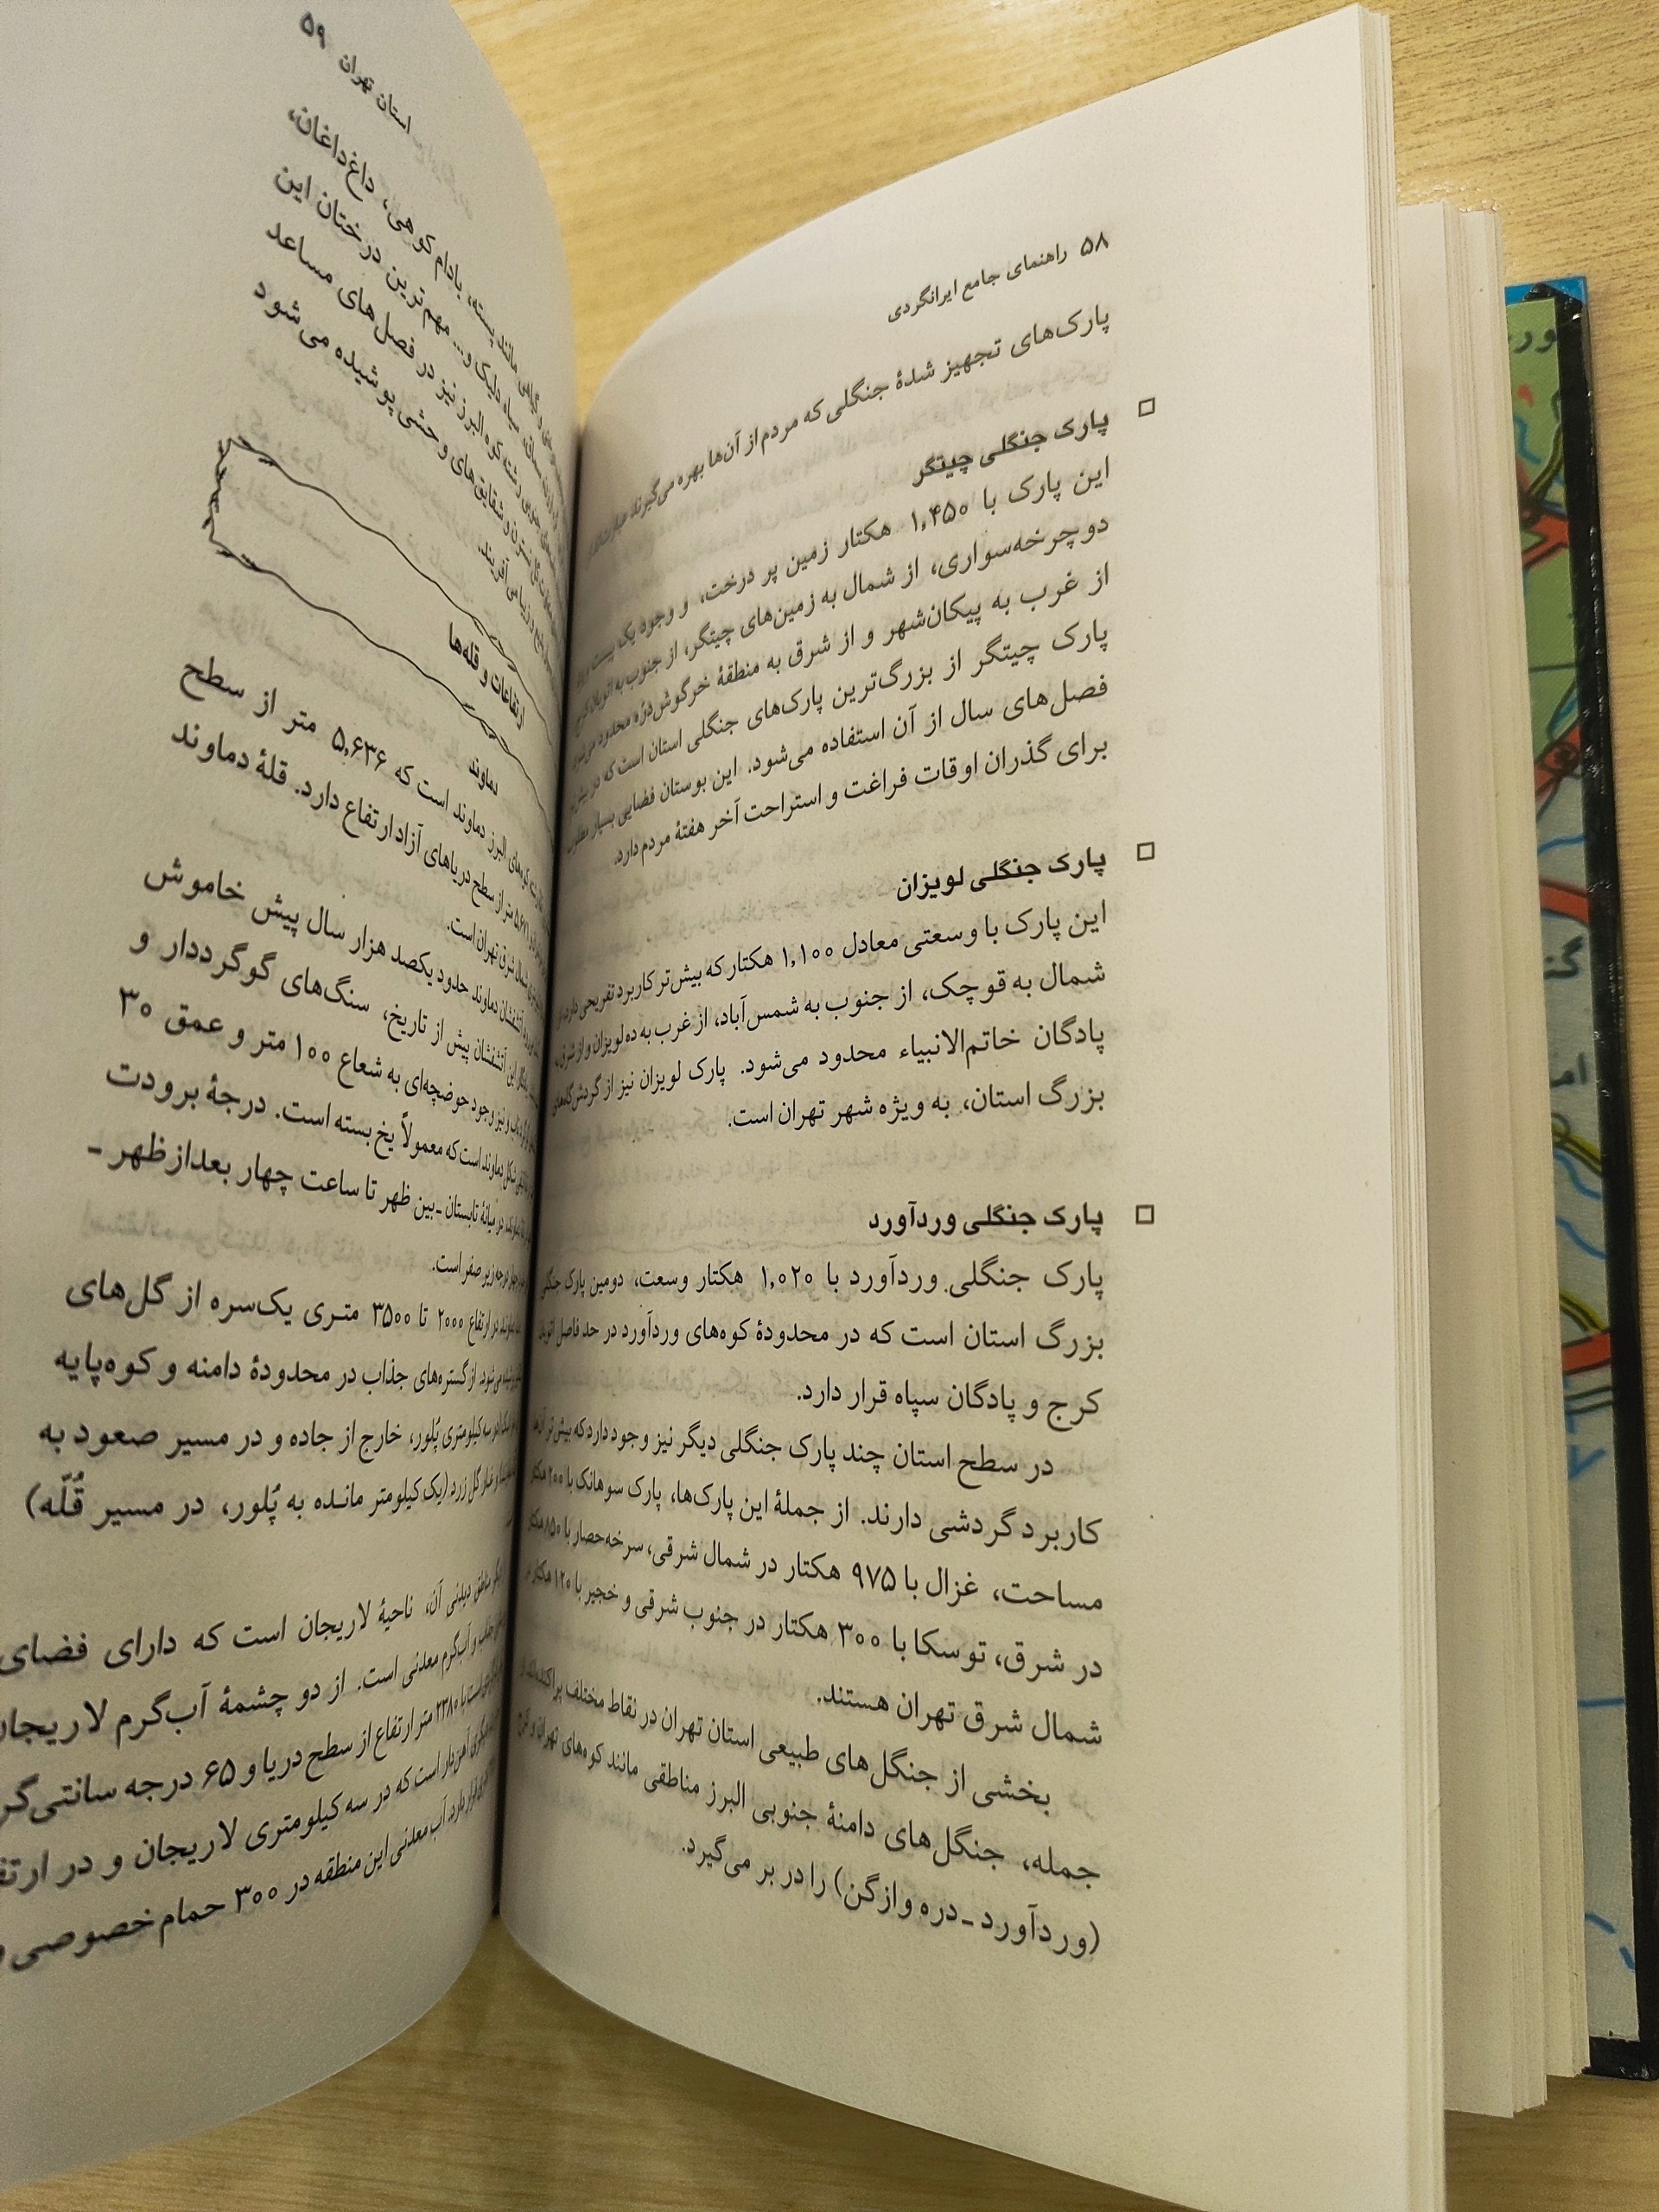 ۵۸ راهنمای جامع ایرانگردی
پارک‌های تجهیز شدهٔ جنگلی که مردم از آن‌ها بهره می‌گیرند عبارت‌اند
پارک جنگلی چیتگر
این پارک با ۱,۴۵۰ هکتار زمین پر درخت، و وجود یک پیست
دوچرخه‌سواری، از شمال به زمین‌های چیتگر، از جنوب به اتوبان کرج
از غرب به پیکان‌شهر و از شرق به منطقهٔ خرگوش‌دره محدود می‌شود.
پارک چیتگر از بزرگ‌ترین پارک‌های جنگلی استان است که در بیش‌تر
فصل‌های سال از آن استفاده می‌شود. این بوستان فضایی بسیار مطلوب
برای گذران اوقات فراغت و استراحت آخر هفتهٔ مردم دارد.
پارک جنگلی لویزان
این پارک با وسعتی معادل ۱,۱۰۰ هکتار که بیش‌تر کاربرد تفریحی دارد، از
شمال به قوچک، از جنوب به شمس‌آباد، از غرب به ده لویزان و از شرق به
پادگان خاتم‌الانبیاء محدود می‌شود. پارک لویزان نیز از گردش‌گاه‌های
بزرگ استان، به ویژه شهر تهران است.
پارک جنگلی وردآورد
پارک جنگلی وردآورد با ۱,۰۲۰ هکتار وسعت، دومین پارک جنگلی
بزرگ استان است که در محدودهٔ کوه‌های وردآورد در حد فاصل اتوبان
کرج و پادگان سپاه قرار دارد.
در سطح استان چند پارک جنگلی دیگر نیز وجود دارد که بیش‌تر آن‌ها
کاربرد گردشی دارند. از جملهٔ این پارک‌ها، پارک سوهانک با ۲۰۰ هکتار
مساحت، غزال با ۹۷۵ هکتار در شمال شرقی، سرخه‌حصار با ۸۵۰ هکتار
در شرق، توسکا با ۳۰۰ هکتار در جنوب شرقی و خجیر با ۱۲۰ هکتار در
شمال شرق تهران هستند.
بخشی از جنگل‌های طبیعی استان تهران در نقاط مختلف پراکنده‌اند و
جمله، جنگل‌های دامنهٔ جنوبی البرز مناطقی مانند کوه‌های تهران و کرج
(وردآورد ـ دره وازگن) را در بر می‌گیرد.
استان تهران ۵۹
مانند پسته، بادام کوهی، داغ‌داغان،
سیاه دلیک و... مهم‌ترین درختان این
جنوبی رشته کوه البرز نیز در فصل‌های مساعد
و شقایق‌های وحشی پوشیده می‌شود
می‌آفریند.
ارتفاعات و قله‌ها
دماوند
کوه‌های البرز دماوند است که ۵,۶۳۶ متر از سطح
متر از سطح دریاهای آزاد ارتفاع دارد. قلهٔ دماوند
شمال شرق تهران است.
آتشفشان دماوند حدود یکصد هزار سال پیش خاموش
این آتشفشان پیش از تاریخ، سنگ‌های گوگرددار و
و نیز وجود حوضچه‌ای به شعاع ۱۰۰ متر و عمق ۳۰
شکل دماوند است که معمولاً یخ بسته است. درجهٔ برودت
در میانهٔ تابستان ـ بین ظهر تا ساعت چهار بعدازظهر ـ
درجه زیر صفر است.
در ارتفاع ۲۰۰۰ تا ۳۵۰۰ متری یک‌سره از گل‌های
می‌شود. از گستره‌های جذاب در محدودهٔ دامنه و کوه‌پایه
سه کیلومتری پُلور، خارج از جاده و در مسیر صعود به
گل زرد (یک کیلومتر مانده به پُلور، در مسیر قُلّه)
دیگر مناطق دیدنی آن، ناحیهٔ لاریجان است که دارای فضای
و آب‌گرم معدنی است. از دو چشمهٔ آب‌گرم لاریجان
با ۲۳۸۰ متر ارتفاع از سطح دریا و ۶۵ درجه سانتی‌گر
آهن‌دار است که در سه کیلومتری لاریجان و در ارتف
دارد. آب معدنی این منطقه در ۳۰۰ حمام خصوصی و